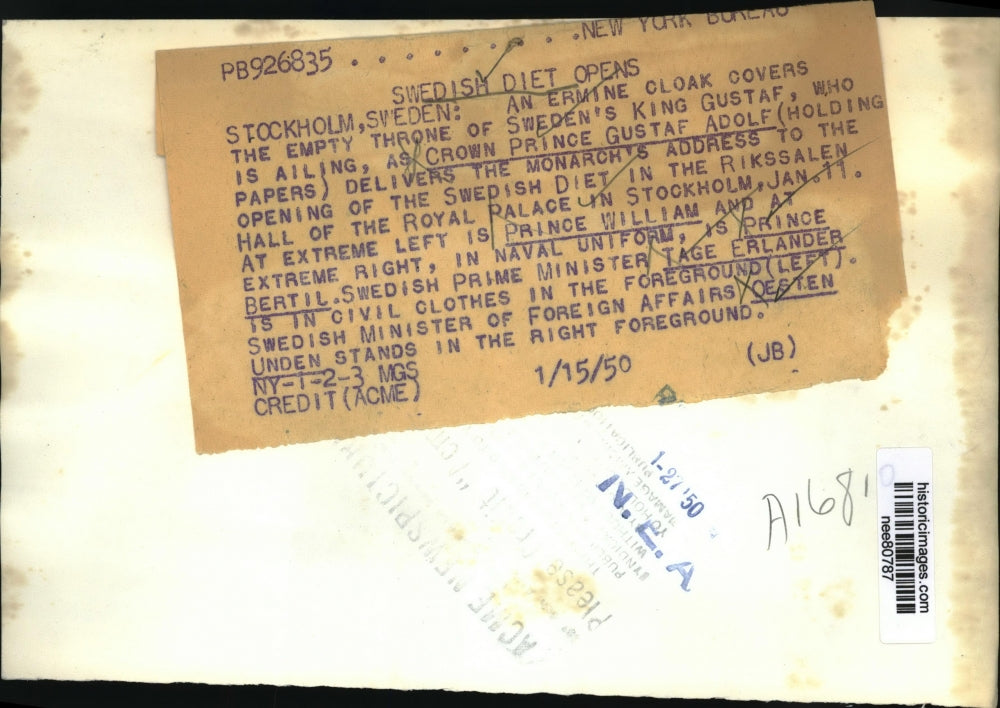 PB926835 . . . . . . . . .NEW YORK BUREAU
SWEDISH DIET OPENS
STOCKHOLM, SWEDEN: AN ERMINE CLOAK COVERS
THE EMPTY THRONE OF SWEDEN'S KING GUSTAF, WHO
IS AILING, AS CROWN PRINCE GUSTAF ADOLF(HOLDING
PAPERS) DELIVERS THE MONARCH'S ADDRESS TO THE
OPENING OF THE SWEDISH DIET IN THE RIKSSALEN
HALL OF THE ROYAL PALACE IN STOCKHOLM,JAN.11.
AT EXTREME LEFT IS PRINCE WILLIAM AND AT
EXTREME RIGHT, IN NAVAL UNIFORM, IS PRINCE
BERTIL.SWEDISH PRIME MINISTER TAGE ERLANDER
IS IN CIVIL CLOTHES IN THE FOREGROUND(LEFT).
SWEDISH MINISTER OF FOREIGN AFFAIRS OESTEN
UNDEN STANDS IN THE RIGHT FOREGROUND.
NY-1-2-3 MGS 1/15/50 (JB)
CREDIT(ACME)
1-27'50
N.E.A
ACME NEWSPICTURES
Please
A1681
historicimages.com
nee80787